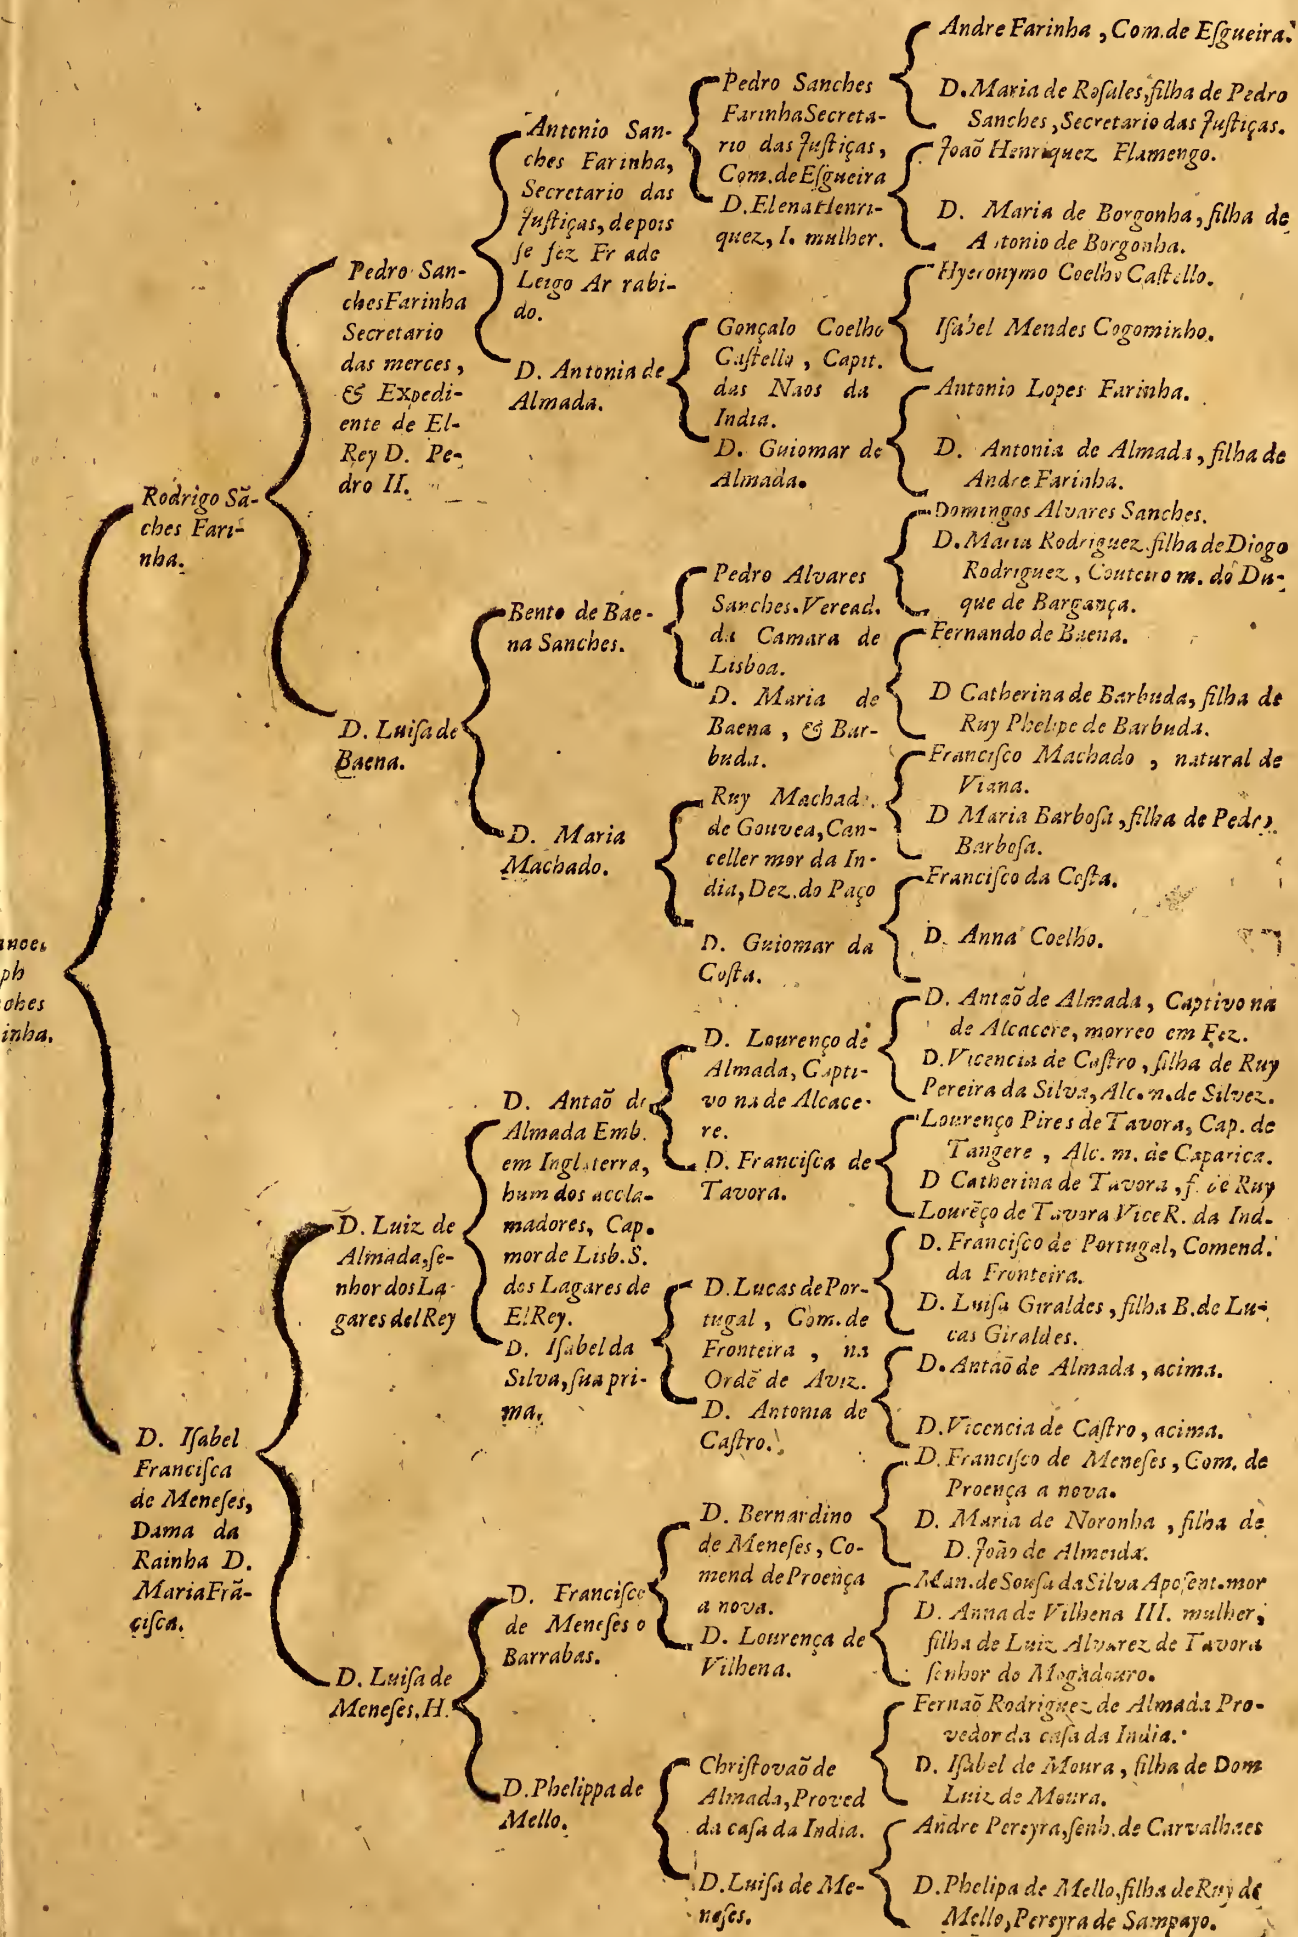 Rodrigo Sã-
ches Fari-
nha.
D. Iſabel
Franciſca
de Meneſes,
Dama da
Rainha D.
Maria Frã-
ciſca.
Pedro San-
ches Farinha
Secretario
das merces,
& Expedi-
ente de El-
Rey D. Pe-
dro II.
D. Luiſa de
Baena.
D. Luiz de
Almada, ſe-
nhor dos La-
gares del Rey
D. Luiſa de
Meneſes. H.
Antonio San-
ches Farinha,
Secretario das
Juſtiças, depois
ſe fez Fr ade
Leigo Ar rabi-
do.
D. Antonia de
Almada.
Bento de Bae-
na Sanches.
D. Maria
Machado.
D. Antaõ de
Almada Emb.
em Inglaterra,
hum dos accla-
madores, Cap.
mor de Lisb. S.
dos Lagares de
ElRey.
D. Iſabel da
Silva, ſua pri-
ma.
D. Franciſco
de Meneſes o
Barrabas.
D. Phelippa de
Mello.
Pedro Sanches
Farinha Secreta-
rio das Juſtiças,
Com. de Eſgueira
D. Elena Henri-
quez, I. mulher.
Gonçalo Coelho
Caſtello, Capit.
das Naos da
India.
D. Guiomar de
Almada.
Pedro Alvares
Sanches. Veread.
da Camara de
Lisboa.
D. Maria de
Baena, & Bar-
buda.
Ruy Machad
de Gouvea, Can-
celler mor da In-
dia, Dez. do Paço
D. Guiomar da
Coſta.
D. Lourenço de
Almada, Capti-
vo na de Alcace-
re.
D. Franciſca de
Tavora.
D. Lucas de Por-
tugal, Com. de
Fronteira, na
Ordẽ de Aviz.
D. Antonia de
Caſtro.
D. Bernardino
de Meneſes, Co-
mend de Proença
a nova.
D. Lourença de
Vilhena.
Chriſtovaõ de
Almada, Proved
da caſa da India.
D. Luiſa de Me-
neſes.
Andre Farinha, Com. de Eſgueira.
D. Maria de Roſales, filha de Pedro
Sanches, Secretario das Juſtiças.
Joaõ Henriquez Flamengo.
D. Maria de Borgonha, filha de
A tonio de Borgonha.
Hyeronymo Coelho Caſtello.
Iſabel Mendes Cogominho.
Antonio Lopes Farinha.
D. Antonia de Almada, filha de
Andre Farinha.
Domingos Alvares Sanches.
D. Maria Rodriguez. filha de Diogo
Rodriguez, Couteiro m. do Du-
que de Bargança.
Fernando de Baena.
D Catherina de Barbuda, filha de
Ruy Phelipe de Barbuda.
Franciſco Machado, natural de
Viana.
D Maria Barboſa, filha de Pedro
Barboſa.
Franciſco da Coſta.
D. Anna Coelho.
D. Antaõ de Almada, Captivo na
de Alcacere, morreo em Fez.
D. Vicencia de Caſtro, filha de Ruy
Pereira da Silva, Alc. m. de Silvez.
Lourenço Pires de Tavora, Cap. de
Tangere, Alc. m. de Caparica.
D Catherina de Tavora, f. de Ruy
Lourẽço de Tavora ViceR. da Ind.
D. Franciſco de Portugal, Comend.
da Fronteira.
D. Luiſa Giraldes, filha B. de Lu-
cas Giraldes.
D. Antaõ de Almada, acima.
D. Vicencia de Caſtro, acima.
D. Franciſco de Meneſes, Com. de
Proença a nova.
D. Maria de Noronha, filha de
D. Joaõ de Almeida.
Man. de Souſa da Silva Apoſent. mor
D. Anna de Vilhena III. mulher,
filha de Luiz Alvarez de Tavora
ſenhor do Mogadouro.
Fernaõ Rodriguez de Almada Pro-
vedor da caſa da India.
D. Iſabel de Moura, filha de Dom
Luiz de Moura.
Andre Pereyra, ſenh. de Carvalhaes
D. Phelipa de Mello, filha de Ruy de
Mello, Pereyra de Sampayo.